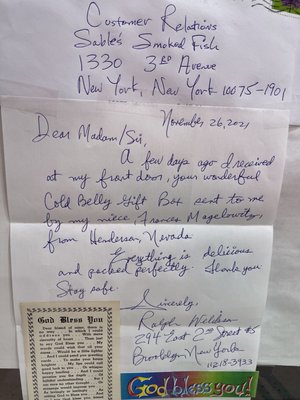 Customer Relations
Sable's Smoked Fish
1330 3RD Avenue
New York, New York 10075-1901
November 26, 2021
Dear Madam/Sir,
A few days ago I received
at my front door, your wonderful
Cold Belly Gift Box sent to me
by my niece, Frances Magelowitz,
from Henderson, Nevada
Everything is delicious
and packed perfectly. Thank you
Stay safe.
Sincerely,
Ralph
294 East 2nd Street #5
Brooklyn New York
11218-3933
God Bless You
God bless you!